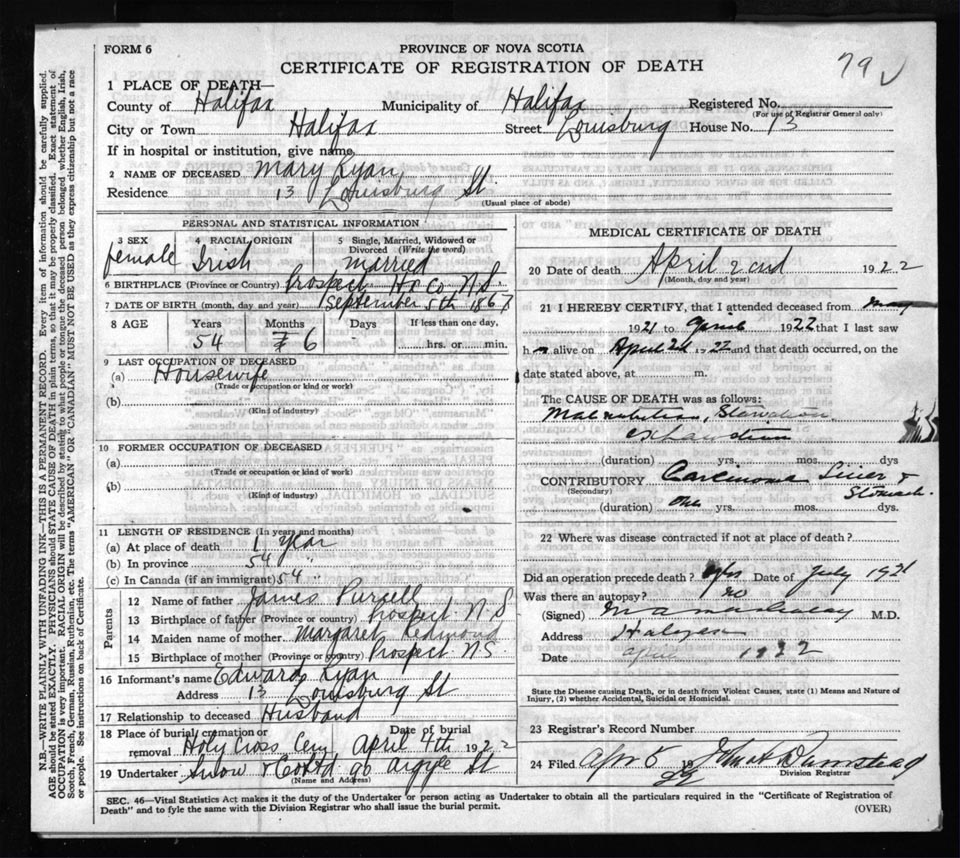 FORM 6
PROVINCE OF NOVA SCOTIA
CERTIFICATE OF REGISTRATION OF DEATH
79
1 PLACE OF DEATH—
County of Halifax Municipality of Halifax Registered No.
(For use of Registrar General only)
City or Town Halifax Street Louisburg House No. 13
If in hospital or institution, give name
2 NAME OF DECEASED Mary Ryan
Residence 13 Louisburg St.
(Usual place of abode)
PERSONAL AND STATISTICAL INFORMATION
3 SEX RACIAL ORIGIN 5 Single, Married, Widowed or Divorced (Write the word)
female Irish married
6 BIRTHPLACE (Province or Country) Prospect Hx Co. N.S.
7 DATE OF BIRTH (month, day, and year) September 5th 1867
8 AGE Years Months Days If less than one day,
54 6 - hrs. or min.
9 LAST OCCUPATION OF DECEASED
(a) Housewife
(Trade or occupation or kind of work)
(b)
(Kind of industry)
10 FORMER OCCUPATION OF DECEASED
(a)
(Trade or occupation or kind of work)
(b)
(Kind of industry)
11 LENGTH OF RESIDENCE (In years and months)
(a) At place of death 1 year
(b) In province 54 "
(c) In Canada (if an immigrant) 54 "
Parents
12 Name of father James Purcell
13 Birthplace of father (Province or country) Prospect N.S
14 Maiden name of mother Margaret Redmond
15 Birthplace of mother (Province or country) Prospect N.S
16 Informant's name Edward Ryan
Address 13 Louisburg St
17 Relationship to deceased Husband
18 Place of burial, cremation or removal Holy Cross Cem Date of burial April 4th 1922
19 Undertaker Snow & Co Ltd 90 Argyle St
(Name and Address)
MEDICAL CERTIFICATE OF DEATH
20 Date of death April 2nd 1922
(Month, day and year)
21 I HEREBY CERTIFY, that I attended deceased from May
1921 to April 1922 that I last saw
h alive on April 2d 1922 and that death occurred, on the
date stated above, at m.
The CAUSE OF DEATH was as follows:
Malnutrition, Starvation
exhaustion
(duration) yrs. mos. dys
CONTRIBUTORY Carcinoma Liver &
(Secondary) Stomach.
(duration) One yrs. mos. dys.
22 Where was disease contracted if not at place of death?
Did an operation precede death? yes Date of July 1921
Was there an autopsy? no
(Signed) M.D.
Address Halifax
Date April 1922
State the Disease causing Death, or in death from Violent Causes, state (1) Means and Nature of
Injury, (2) whether Accidental, Suicidal or Homicidal.
23 Registrar's Record Number
24 Filed Apr 5 1922 John A Dumstead
Division Registrar
SEC. 46—Vital Statistics Act makes it the duty of the Undertaker or person acting as Undertaker to obtain all the particulars required in the "Certificate of Registration of
Death" and to fyle the same with the Division Registrar who shall issue the burial permit. (OVER)
N.B.—WRITE PLAINLY WITH UNFADING INK—THIS IS A PERMANENT RECORD. Every item of information should be carefully supplied.
AGE should be stated EXACTLY. PHYSICIANS should STATE CAUSE OF DEATH in plain terms, so that it may be properly classified. Exact statement of
OCCUPATION is very important. RACIAL ORIGIN will be described by stating to what people or tongue the deceased person belonged whether English, Irish,
Scotch, French, German, Russian, Ruthenian, etc. The terms "AMERICAN" OR "CANADIAN" MUST NOT BE USED as they express citizenship but not a race
or people. See instructions on back of Certificate.